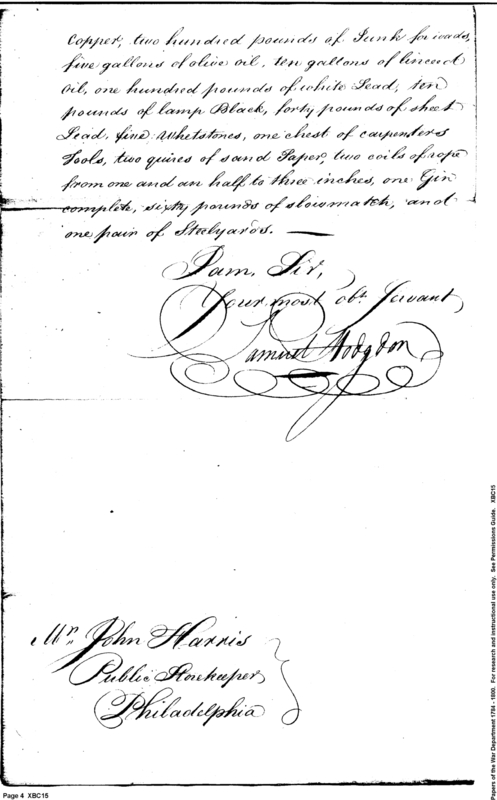 Copper, two hundred pounds of Junk for wads,
five gallons of olive oil, ten gallons of linceed
Oil, one hundred pounds of white Lead, ten
pounds of lamp Black, forty pounds of sheet
Lead, five Whetstones, one chest of carpenters
Tools, two quires of sand Paper, two coils of rope
from one and an half to three inches, one Gin
complete, sixty pounds of slowmatch, and
one pair of Steelyards. —
I am, Sir,
Your most obt. Servant
Samuel Hodgdon
Mr. John Harris
Public Storekeeper
Philadelphia
Page 4 XBC15
Papers of the War Department 1784 - 1800. For research and instructional use only. See Permissions Guide. XBC15